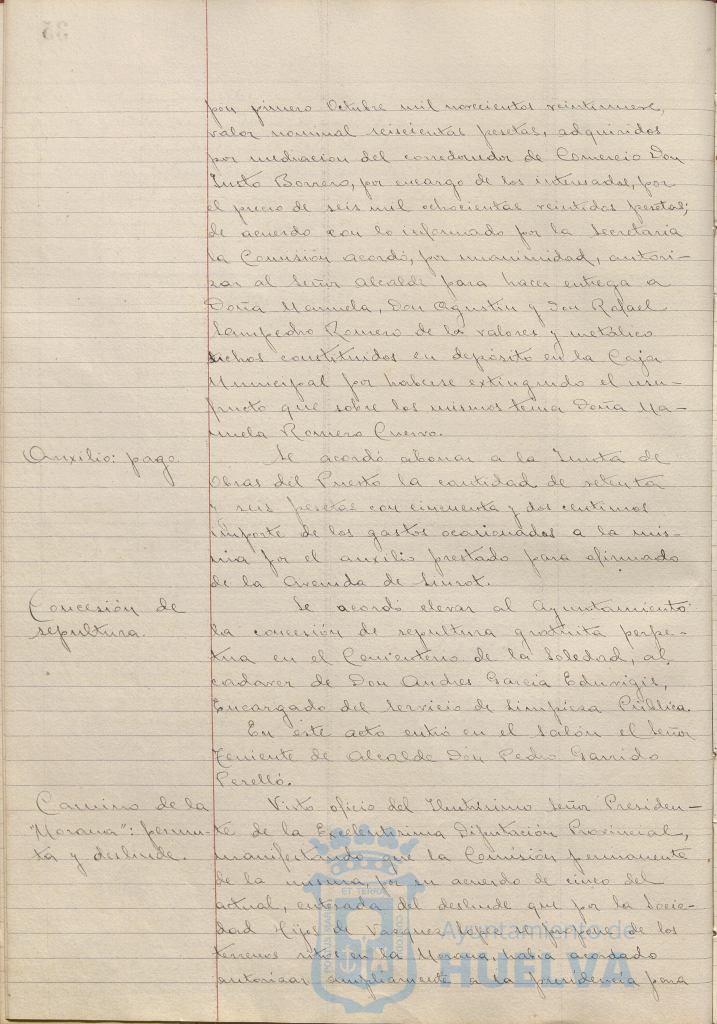 por primero Octubre mil novecientos veintinueve,
valor nominal seiscientas pesetas, adquiridos
por mediación del corredor de Comercio Don
Justo Borrero, por encargo de los interesados, por
el precio de seis mil ochocientas veintidos pesetas;
de acuerdo con lo informado por la Secretaria
la Comisión acordó, por unanimidad, autori-
zar al Señor Alcalde para hacer entrega a
Doña Manuela, Don Agustín y Don Rafael
Sampedro Romero de los valores y metálico
dichos constituidos en depósito en la Caja
Municipal por haberse extinguido el usu-
fructo que sobre los mismos tenia Doña Ma-
nuela Romero Cuervo.
Auxilio: pago.
Se acordó abonar a la Junta de
Obras del Puerto la cantidad de setenta
y seis pesetas con cincuenta y dos centimos
importe de los gastos ocasionados a la mis-
ma por el auxilio prestado para afirmado
de la Avenida de
Concesión de
sepultura.
Se acordó elevar al Ayuntamiento
la concesión de sepultura gratuita perpe-
tua en el Cementerio de la Soledad, al
cadaver de Don Andres García Eduvigis,
Encargado del Servicio de Limpieza Pública.
En este acto entró en el salón el Señor
Teniente de Alcalde Don Pedro Garrido
Perelló.
Camino de la
"Morana": permu-
ta y deslinde.
Visto oficio del Ilustrísimo Señor Presiden-
te de la Excelentísima Diputación Provincial,
manifestando que la Comisión permanente
de la misma, por su acuerdo de cinco del
actual, enterada del deslinde que por la Socie-
dad Hijos de Vazquez Lopez se propone de los
terrenos sitos en la Morana, habia acordado
autorizar ampliamente a la presidencia para
Ayuntamiento de
HUELVA